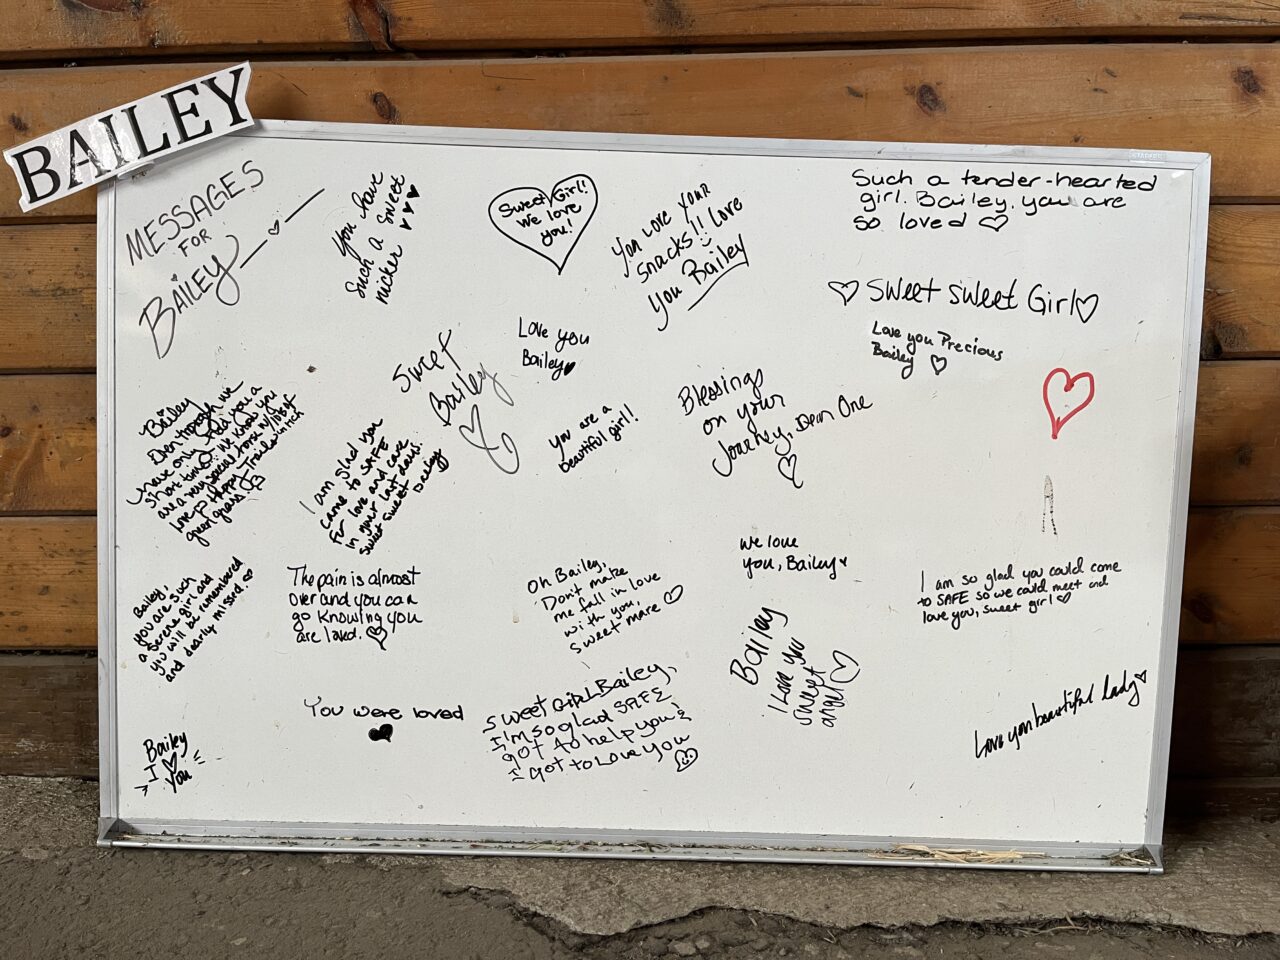 BAILEY
MESSAGES
FOR
BAILEY
You have
such a sweet
nicker
Sweet Girl!
We love
you!
You love your
snacks!! Love
you Bailey
Such a tender-hearted
girl. Bailey, you are
so loved
Sweet Sweet Girl
Love you Precious
Bailey
Love you
Bailey
Sweet
Bailey
Blessings
on your
Journey, Dear One
you are a
beautiful girl!!
Bailey
Even though we
have only had you a
short time. We know you
are a very special horse w/ lots of
love
Happy Trails
green grass.
I am glad you
came to SAFE
for love and care
in your last days.
sweet sweet Bailey
Bailey,
you are such
a serene girl and
you will be remembered
and dearly missed.
The pain is almost
over and you can
go knowing you
are loved.
Oh Bailey,
Don't make
me fall in love
with you,
sweet mare
We love
you, Bailey
I am so glad you could come
to SAFE so we could meet and
love you, sweet girl
Bailey
I love you
sweet
angel
You were loved
Sweet Girl Bailey,
I'm so glad SAFE
got to help you &
I got to love you
Love you beautiful lady
Bailey
I
You